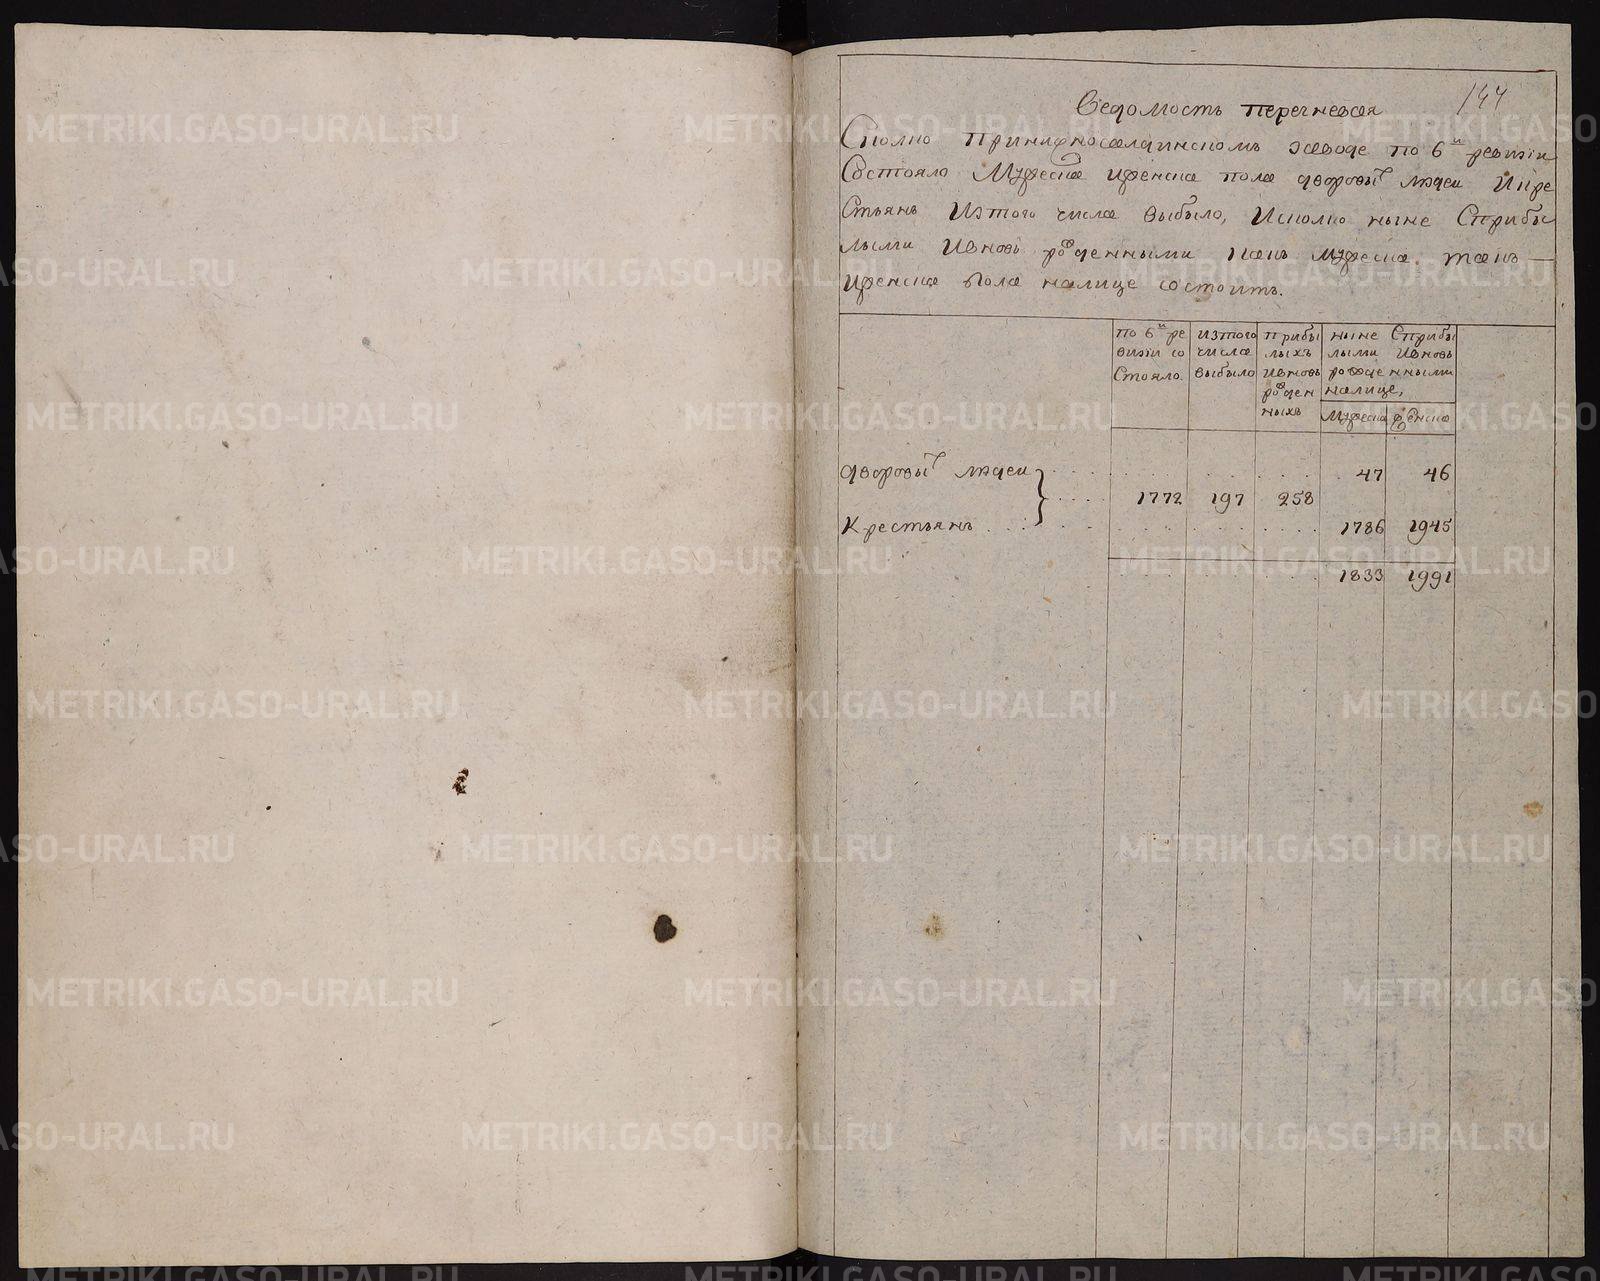 144
Ведомость перечневая
Сколко принижносалдинскомъ заводе по 6й ревизіи
Состояло Мужеска иженска пола дворовыхъ людеи Икре
стьянъ Изтого числа выбыло, Исколко ныне Сприбы
лыми Ивновь рожденными какъ мужеска такъ —
иженска пола налице состоитъ.
по 6й ре
визіи со
Стояло.
изтого
числа
выбыло
прибы
лыхъ
ивновь
рожден
ныхъ
ныне Сприбы
лыми Ивновь
рожденными
налице,
Мужеска
Женска
дворовыхъ людеи 47 46
1772 197 258
Крестьянъ 1786 1945
1833 1991
METRIKI.GASO-URAL.RU